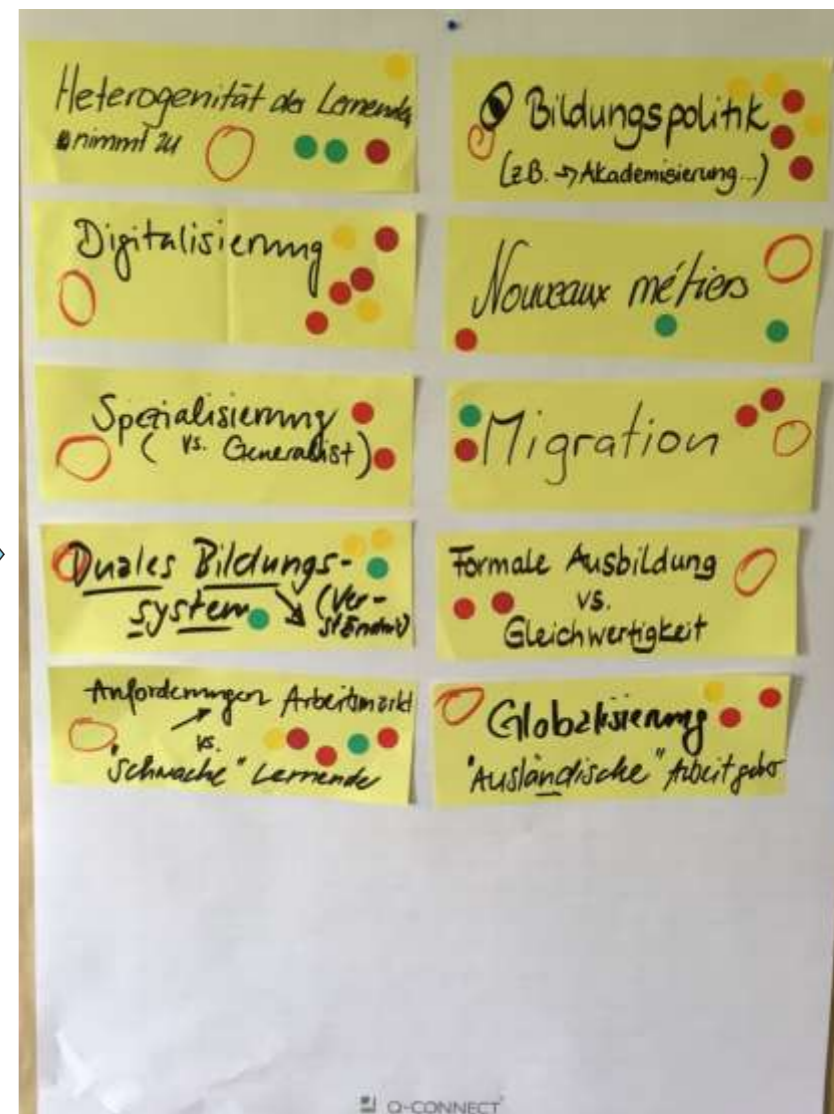 Heterogenität der Lernenden
nimmt zu
Digitalisierung
Spezialisierung
( vs. Generalist)
Duales Bildungs-
system (Ver-
ständnis)
Anforderungen Arbeitsmarkt
vs.
"schwache" Lernende
Bildungspolitik
(z.B. → Akademisierung...)
Nouveaux métiers
Migration
Formale Ausbildung
vs.
Gleichwertigkeit
Globalisierung
"Ausländische" Arbeitgeber
Q-CONNECT